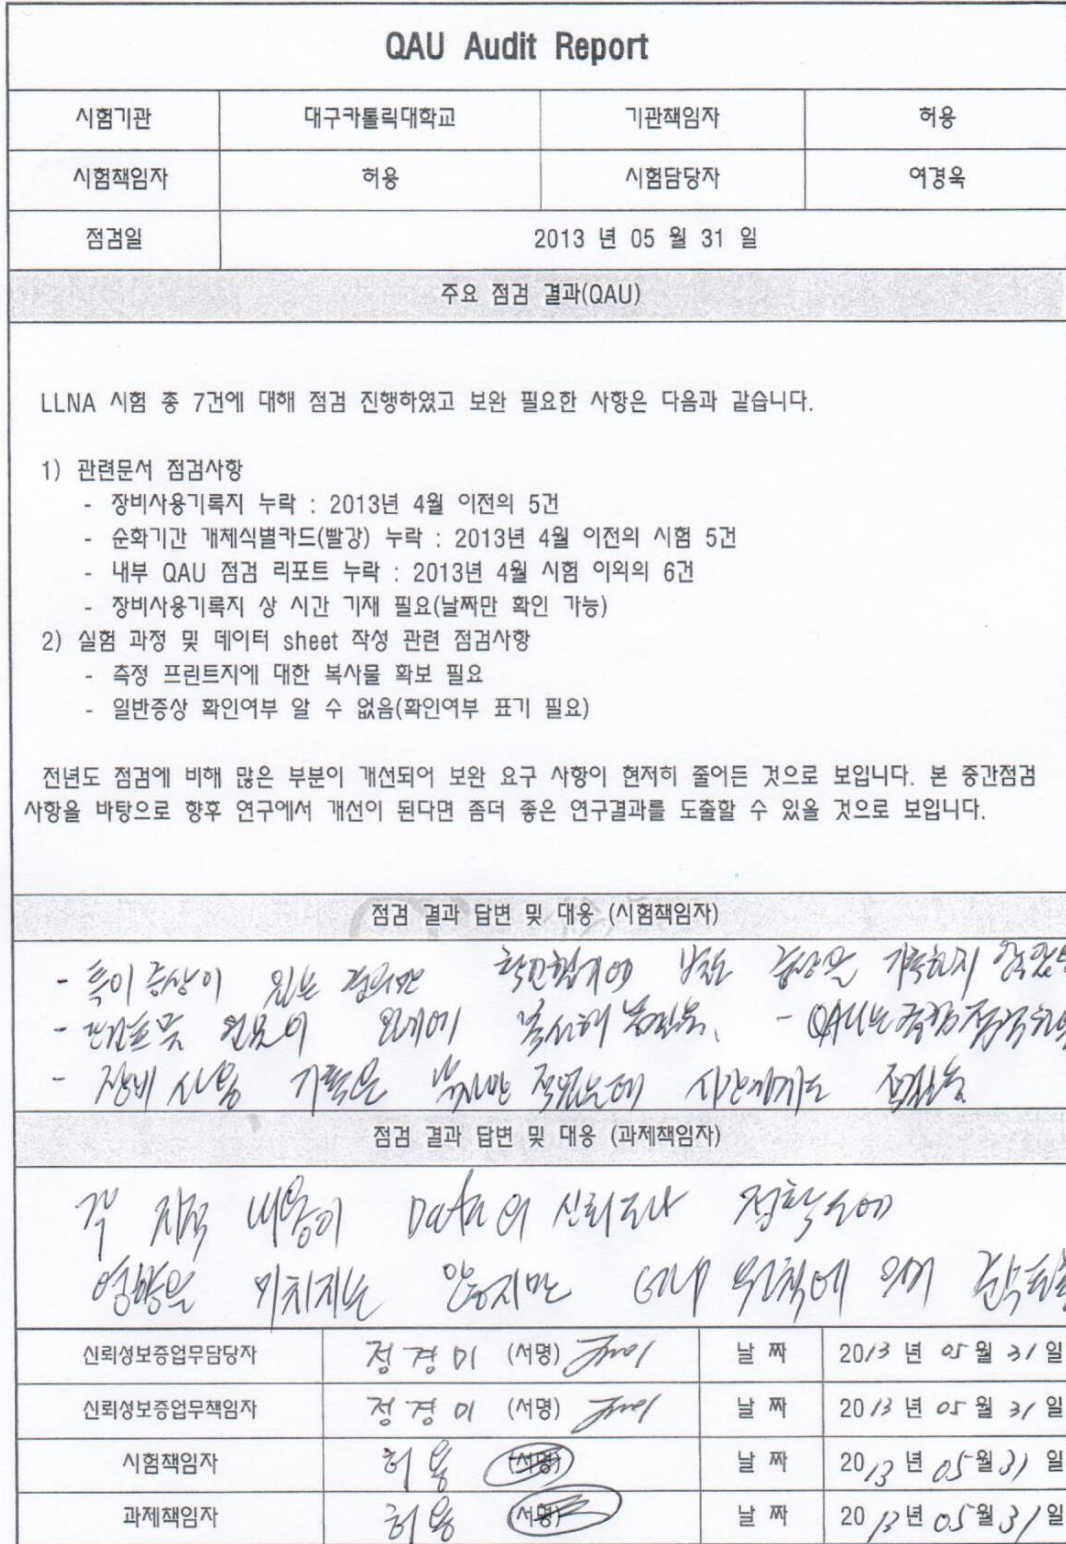 QAU Audit Report
시험기관 대구카톨릭대학교 기관책임자 허용
시험책임자 허용 시험담당자 여경욱
점검일 2013 년 05 월 31 일
주요 점검 결과(QAU)
LLNA 시험 총 7건에 대해 점검 진행하였고 보완 필요한 사항은 다음과 같습니다.
1) 관련문서 점검사항
- 장비사용기록지 누락 : 2013년 4월 이전의 5건
- 순화기간 개체식별카드(빨강) 누락 : 2013년 4월 이전의 시험 5건
- 내부 QAU 점검 리포트 누락 : 2013년 4월 시험 이외의 6건
- 장비사용기록지 상 시간 기재 필요(날짜만 확인 가능)
2) 실험 과정 및 데이터 sheet 작성 관련 점검사항
- 측정 프린트지에 대한 복사물 확보 필요
- 일반증상 확인여부 알 수 없음(확인여부 표기 필요)
전년도 점검에 비해 많은 부분이 개선되어 보완 요구 사항이 현저히 줄어든 것으로 보입니다. 본 중간점검
사항을 바탕으로 향후 연구에서 개선이 된다면 좀더 좋은 연구결과를 도출할 수 있을 것으로 보입니다.
점검 결과 답변 및 대응 (시험책임자)
- 특이증상이 있는 증상을 기록하지
- - QAU는
- 장비 사용 기록은 날짜만 적었는데 시간까지도
점검 결과 답변 및 대응 (과제책임자)
각 지적 내용이 Data의 신뢰도나 정확도에
영향을 미치지는 않지만 원칙에
신뢰성보증업무담당자 정경미 (서명) 날 짜 2013 년 05 월 31 일
신뢰성보증업무책임자 정경미 (서명) 날 짜 2013 년 05 월 31 일
시험책임자 허용 (서명) 날 짜 2013 년 05 월 31 일
과제책임자 허용 (서명) 날 짜 2013 년 05 월 31 일